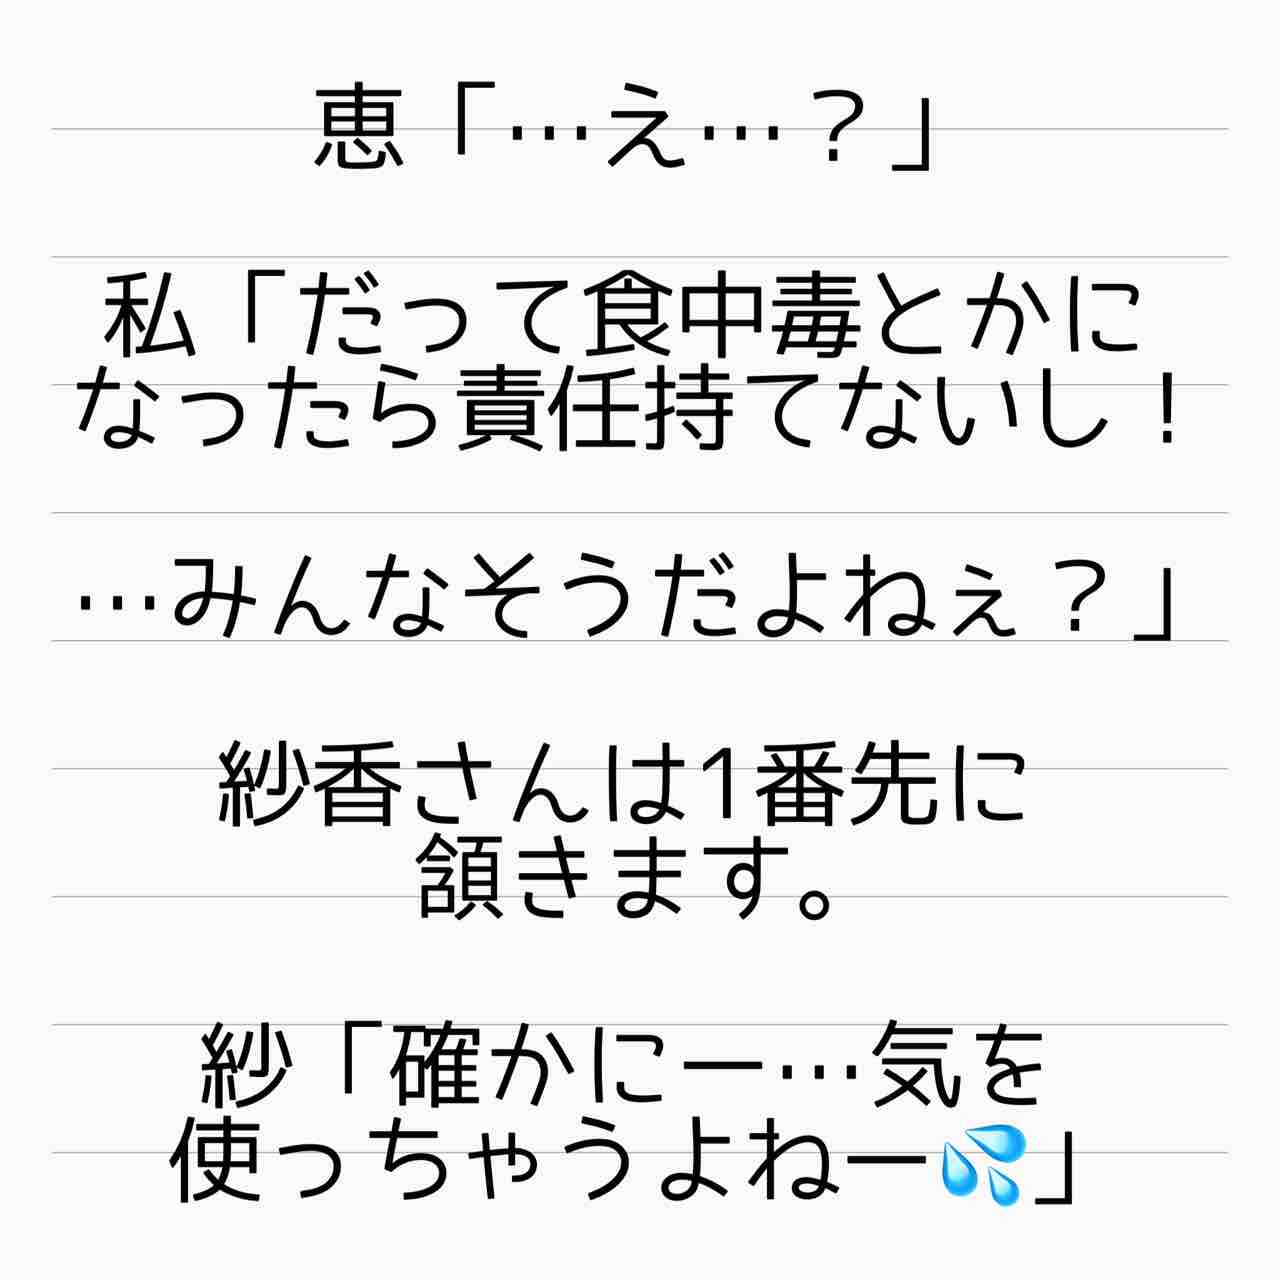 恵「…え…？」
私「だって食中毒とかに
なったら責任持てないし！
…みんなそうだよねぇ？」
紗香さんは1番先に
頷きます。
紗「確かにー…気を
使っちゃうよねー💦」